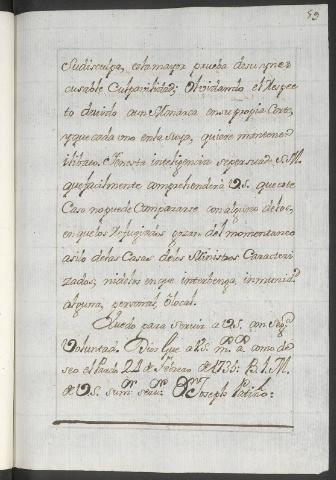 59
su disculpa, esta mayor prueba de su ynex
cusable Culpavilidad; Olvidando el Respec
to devido a un Monarca en su propia Corte,
y que cada uno en la suya, quiere mantener
ilibato. En esta inteligencia se persuade S. M.
que facilmente comprehenderá VS. que este
Caso no puede Compararse con alguno de los,
en que los Refugiados gozan del momentaneo
asilo de las Casas de los Ministros Caracteri
zados; ni de los en que intervenga inmunid.
alguna, personal, ô local.
Quedo para servir a VS. con seg.a
Voluntad. Dios Gue a VS. m.s a.s como de
seo el Pardo 24 de Febrero de 1735: B. L. M.
de VS. su m.r serv.r Dn. Joseph Patiño: